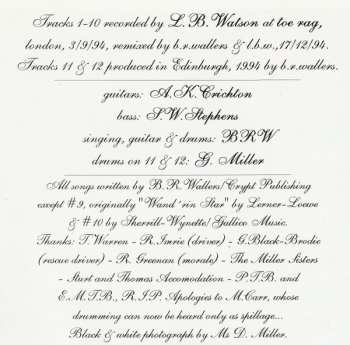 Tracks 1-10 recorded by L.B. Watson at toe rag,
london, 3/9/94, remixed by b.r.wallers & l.b.w.,17/12/94.
Tracks 11 & 12 produced in Edinburgh, 1994 by b.r.wallers.
guitars: A.K.Crichton
bass: S.W.Stephens
singing, guitar & drums: BRW
drums on 11 & 12: G. Miller
All songs written by B.R.Wallers/Crypt Publishing
except #9, originally "Wand'rin Star" by Lerner-Loewe
& #10 by Sherrill-Wynette/Gallico Music.
Thanks: T.Warren - R. Imrie (driver) - G.Black-Brodie
(rescue driver) - R. Greenan (morals) - The Miller Sisters
- Sturt and Thomas Accomodation - P.T.B. and
E.M.T.B., R.I.P. Apologies to M.Carr, whose
drumming can now be heard only as spillage...
Black & white photograph by Ms D. Miller.